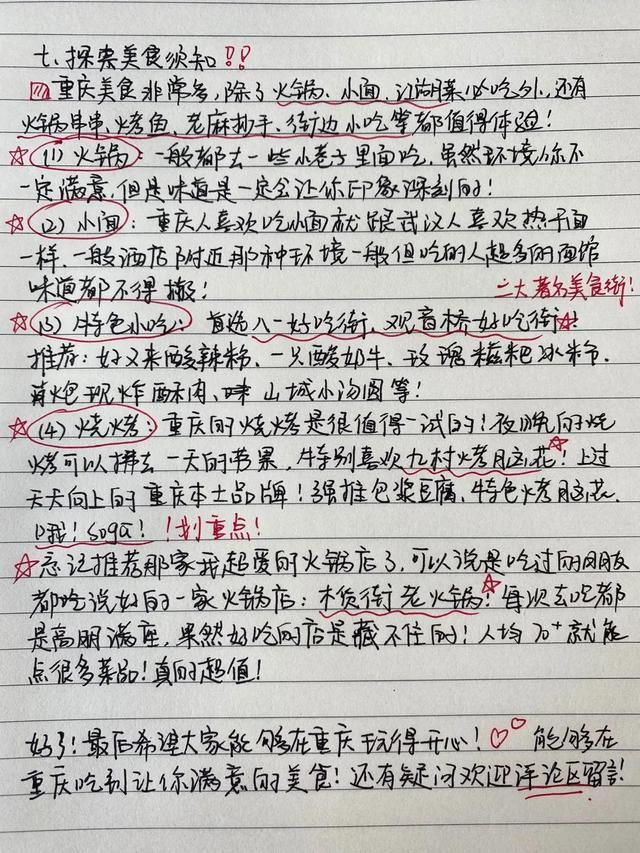 七、探索美食须知!!
重庆美食非常多,除了火锅、小面、江湖菜必吃外,还有
火锅串串、烤鱼、老麻抄手、街边小吃等都值得体验!
(1)火锅:一般都去一些小巷子里面吃,虽然环境你不
一定满意,但是味道是一定会让你印象深刻的!
(2)小面:重庆人喜欢吃小面就跟武汉人喜欢热干面
一样,一般酒店附近那种环境一般但吃的人超多的面馆
味道都不得撇!
二大著名美食街!
(3)特色小吃:首选八一好吃街、观音桥好吃街
推荐:好又来酸辣粉、一只酸奶牛、玫瑰糍粑冰粉、
肖炮现炸酥肉、山城小汤圆等!
(4)烧烤:重庆的烧烤是很值得一试的!夜晚的烧
烤可以拂去一天的劳累,特别喜欢九村烤脑花!上过
天天向上的重庆本土品牌!强推包浆豆腐、特色烤脑花、
哦!soga!!划重点!
忘记推荐那家我超爱的火锅店了,可以说是吃过的朋友
都吃说好的一家火锅店:木货街老火锅!每次去吃都
是高朋满座,果然好吃的店是藏不住的!人均70+就能
点很多菜品!真的超值!
好了!最后希望大家能够在重庆玩得开心!能够在
重庆吃到让你满意的美食!还有疑问欢迎评论区留言!